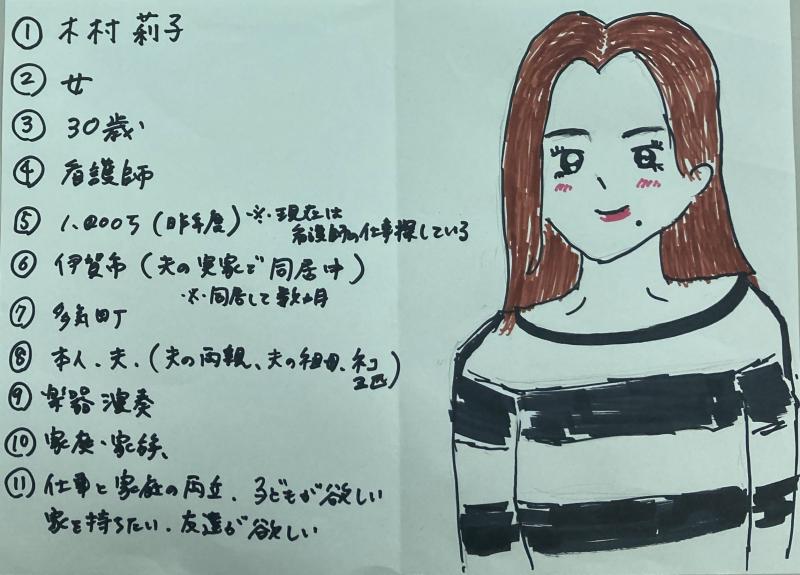 ① 木村 莉子
② 女
③ 30歳
④ 看護師
⑤ 1,200万(昨年度)※現在は
看護師の仕事探している
⑥ 伊賀市(夫の実家で同居中)
※同居して数ヵ月
⑦ 多気町
⑧ 本人、夫、(夫の両親、夫の祖母、ネコ
2匹)
⑨ 楽器演奏
⑩ 家庭・家族、
⑪ 仕事と家庭の両立、子どもが欲しい
家を持ちたい、友達が欲しい